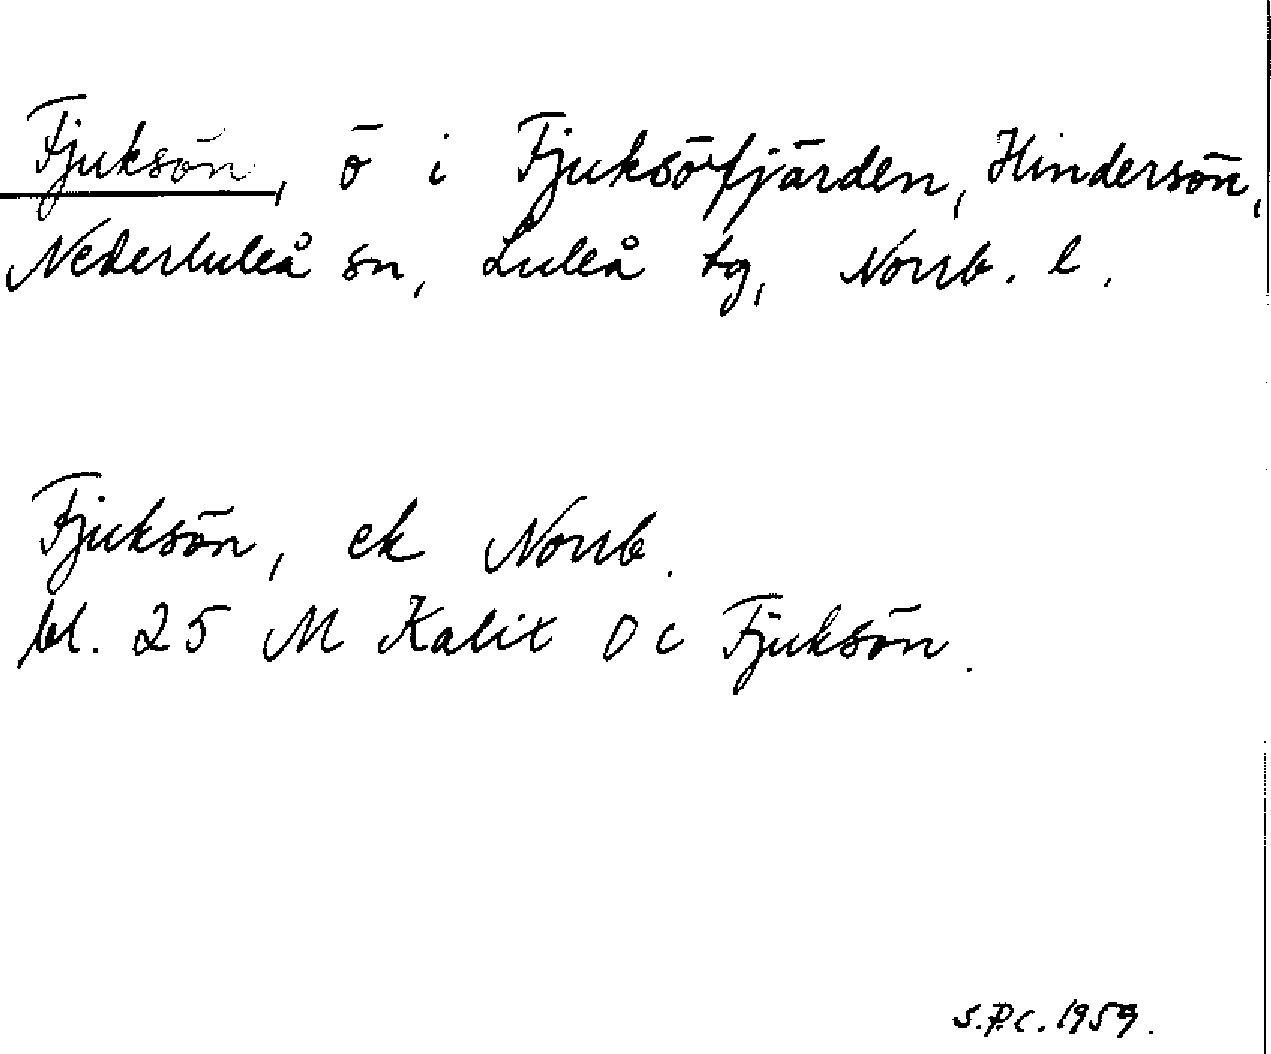 Fjuksön, ö i Fjuksöfjärden, Hindersön,
Nederluleå sn, Luleå tg, Norrb. l.
Fjuksön, ek Norrb.
bl. 25 M Kalix O c Fjuksön.
S.P.C. 1959.